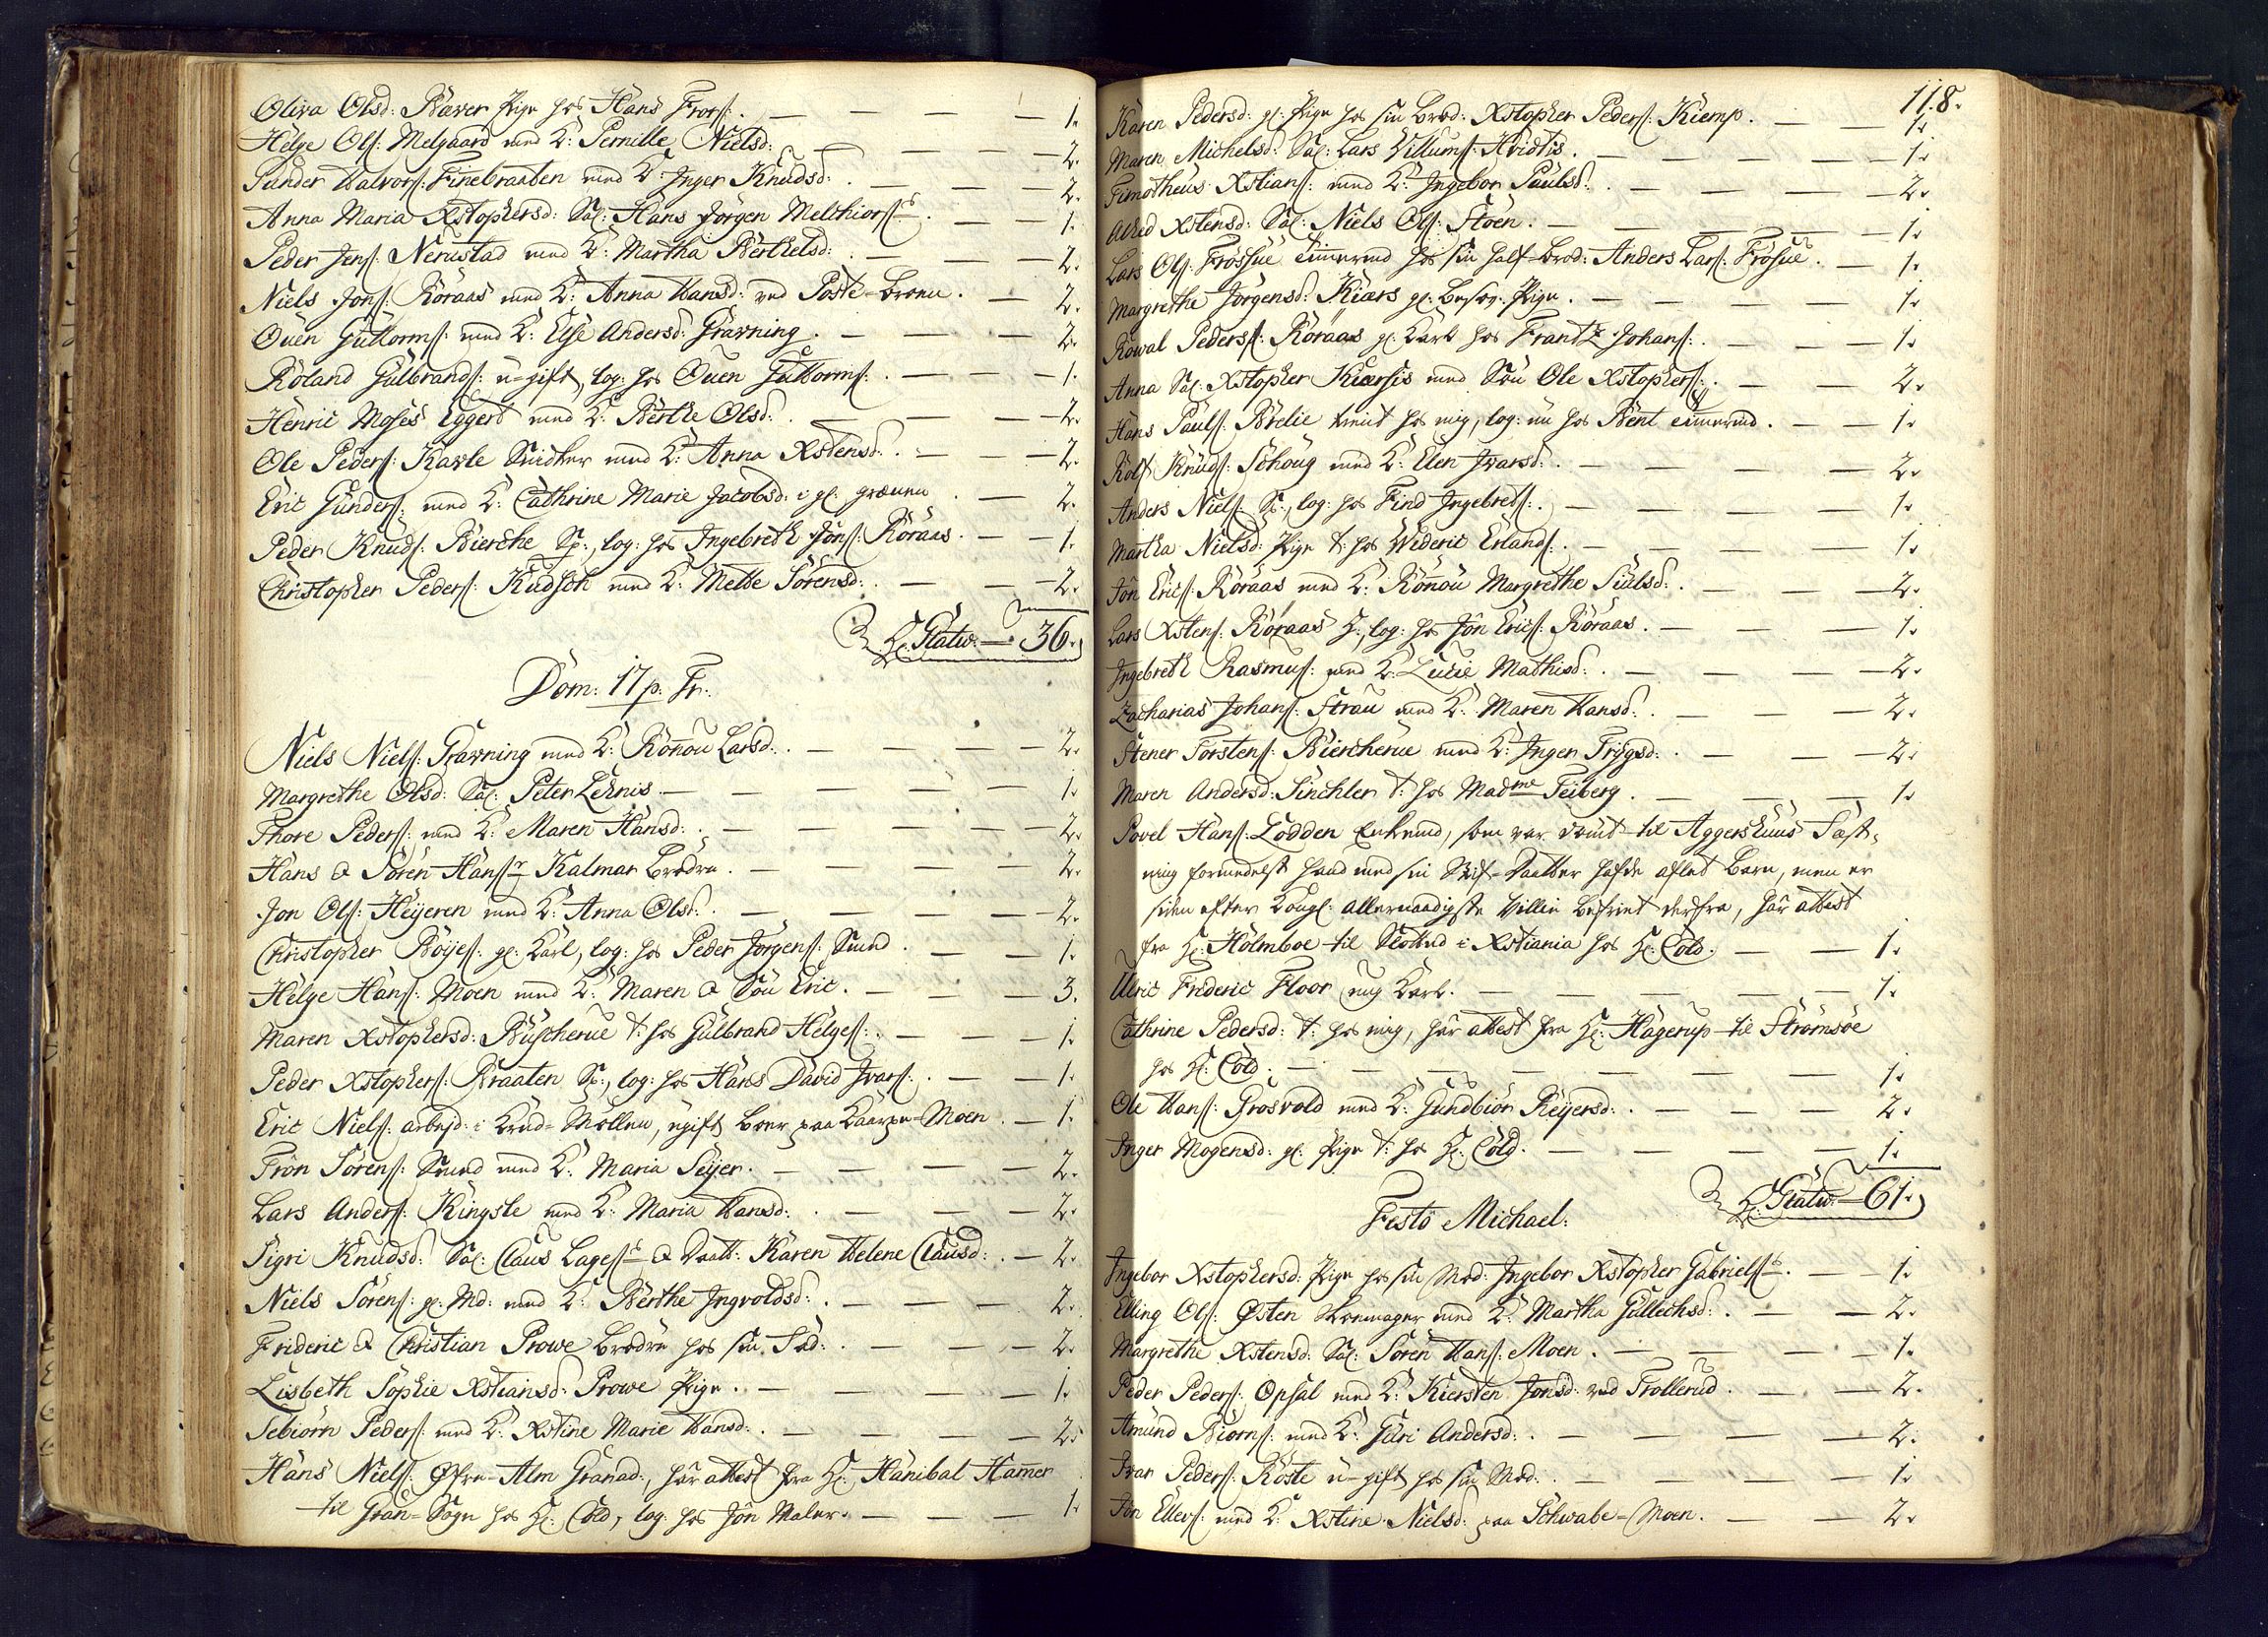 Oliva Olsd: Bæver Pige hos Hans Frorſ: . — — — — 1.
Helge Olſ: Melgaard med K: Pernille Nielsd: — — — 2.
Gunder Halvorſ: Finebraaten med K: Inger Knudsd: . — — — 2.
Anna Maria Xstophersd: Sal: Hans Jörgen Melchiorſ: . — — 1.
Peder Jenſ: Nerustad med K: Martha Berthelsd: . — — — 2.
Niels Jonſ: Röraas med K: Anna Hansd: ved Poste-Broen . — 2.
Ouen Guttormſ: med K: Else Andersd: Gravning . — — — 2.
Roland Gulbrandſ: u-gift, log: hos Ouen Guttormſ: . — — — 1.
Henric Moses Eggert med K: Berthe Olsd: . — — — 2.
Ole Pederſ: Kavle Snidker med K: Anna Xstensd: . — — — 2.
Eric Gunderſ: med K: Cathrine Marie Jacobsd: i gl: gruen . — 2.
Peder Knudſ: Bierche Sp:, log: hos Ingebreth Jonſ: Röraas . — — 1.
Christopher Pederſ: Kudsch med K: Mette Sörensd: . — — — 2.
Hr: Statw: — 36.
Dom: 17 p. Tr:
Niels Nielſ: Gravning med K: Rönnou Larsd: . — — — — 2.
Margrethe Olsd: Sal: Peter Lehnis . — — — — — 1.
Thore Pederſ: med K: Maren Hansd: . — — — — — 2.
Hans & Sören Hanſ: Kalmar Brödre . — — — — — 2.
Jon Olſ: Heyeren med K: Anna Olsd: . — — — — — 2.
Christopher Böyeſ: gl: Karl, log: hos Peder Jörgenſ: Smed . — — 1.
Helge Hanſ: Moen med K: Maren & Sön Eric . — — — 3.
Maren Xstophersd: Buscherue t: hos Gulbrand Helgeſ: . — — — 1.
Peder Xstopherſ: Braaten Sp:, log: hos Hans David Ivarſ: . — — 1.
Eric Nielſ: arbejd: i Krud-Möllen, ugift boer paa Kaarpe-Moen . — 1.
Trön Sörenſ: Smed med K: Maria Seyer . — — — — 2.
Lars Anderſ: Kingsle med K: Maria Hansd: . — — — 2.
Sigri Knudsd: Sal: Claus Lageſ: & Daatt: Karen Helene Clausd: . — 2.
Niels Sörenſ: gl: Md: med K: Berthe Ingvoldsd: . — — — 2.
Frideric & Christian Prowe Brödre hos sin Fad: . — — — 2.
Lisbeth Sophie Xstiansd: Prowe Pige . — — — — — 1.
Sebiörn Pederſ: med K: Xstine Marie Hansd: . — — — — 2.
Hans Nielſ: Øfre-Alm Granad:, har attest fra Hr: Hanibal Hamer
til Gran-Sogn hos Hr: Cold, log: hos Jön Maler . — — — 1.
118.
Karen Pedersd: gl: Pige hos sin Brod: Xstopher Pederſ: Kiemp . — — 1.
Maren Michelsd: Sal: Lars Villumſ: Hvidtis . — — — — 1.
Timotheus Xstianſ: med K: Ingebor Paulsd: . — — — — 2.
Alhed Xstensd: Sal: Niels Olſ: Stöen . — — — — — 1.
Lars Olſ: Frösüe Timermd hos sin half-Brod: Anders Larſ: Frösüe . — 1.
Margrethe Jörgensd: Kiærs gl: besov: Pige . — — — — 1.
Rowal Pederſ: Röraas gl: Karl hos Frantz Johanſ: . — — — 1.
Anna Sal: Xstopher Kiærsis med Sön Ole Xstopherſ: . — — 2.
Hans Paulſ: Brelie tient hos mig, log: nu hos Bent Timermd . — — 1.
Rolf Knudſ: Schoug med K: Elen Ivarsd: . — — — — 2.
Anders Nielſ: Sp:, log: hos Find Ingebretſ: . — — — — 1.
Martha Nielsd: Pige t: hos Wideric Erlandſ: . — — — — 1.
Jön Ericſ: Röraas med K: Rönnou Margrethe Siulsd: . — — — 2.
Lars Xstenſ: Röraas H:, log: hos Jön Ericſ: Röraas . — — — 1.
Ingebreth Rasmuſ: med K: Lucie Mathisd: . — — — — 2.
Zacharias Johanſ: Strau med K: Maren Hansd: . — — — 2.
Stener Torstenſ: Biercherue med K: Inger Trygsd: . — — — 2.
Maren Andersd: Sinchler t: hos Madme Feiberg . — — — 1.
Povel Hanſ: Lodden Enkemd, som var dömt til Aggershuus Fæst-
ning formedelst hand med sin Stif-Daatter hafde aflet Barn, men er
siden efter Kongl: allernaadigste Villie befriet derfra, har attest
fra Hr: Holmboe til Slottet i Xstiania hos Hr: Cold . — — 1.
Ulric Frideric Floor ung Karl . — — — — — 1.
Cathrine Pedersd: t: hos mig, har attest fra Hr: Hagerup til Strömsöe
hos Hr: Cold . — — — — — — — 1.
Ole Hanſ: Grosvold med K: Gundbiör Reyersd: . — — — 2.
Inger Mogensd: gl: Pige t: hos Hr: Cold . — — — — 1.
Hr: Statw: — 61.
Festo Michael:
Ingebor Xstophersd: Pige hos sin Mod: Ingebor Xstopher Gabrielſ: . — 1.
Elling Olſ: Østen Skomager med K: Martha Gullichsd: . — — 2.
Margrethe Xstensd: Sal: Sören Hanſ: Moen . — — — — 1.
Peder Pederſ: Opsal med K: Kiersten Jonsd: ved Trollerud . — — 2.
Amund Biörnſ: med K: Guri Andersd: . — — — — 2.
Ivar Pederſ: Roste u-gift hos sin Mod: . — — — — 1.
Jön Ellerſ: med K: Xstine Nielsd: paa Schwabe-Moen . — — 2.